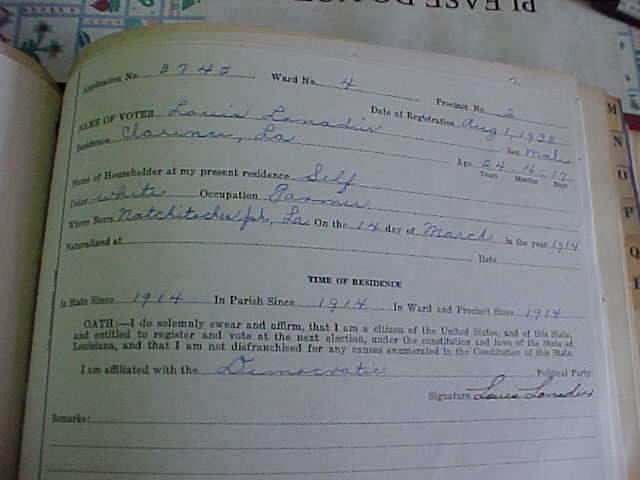 PLEASE DO NOT
Application No. 3745 Ward No. 4 Precinct No. 2
NAME OF VOTER Louis Lonadier Date of Registration Aug 1, 1938
Residence Clarence, La Sex Male
Age 24 4 17
Years Months Days
Name of Householder at my present residence Self
Color White Occupation Farmer
Where Born Natchitoches psh, La. On the 14 day of March in the year 1914
Naturalized at Date
TIME OF RESIDENCE
In State Since 1914 In Parish Since 1914 In Ward and Precinct Since 1914
OATH:—I do solemnly swear and affirm, that I am a citizen of the United States, and of this State,
and entitled to register and vote at the next election, under the constitution and laws of the State of
Louisiana, and that I am not disfranchised for any causes enumerated in the Constitution of this State.
I am affiliated with the Democratic Political Party.
Signature Louis Lonadier
Remarks:
M
N
O
P
Q